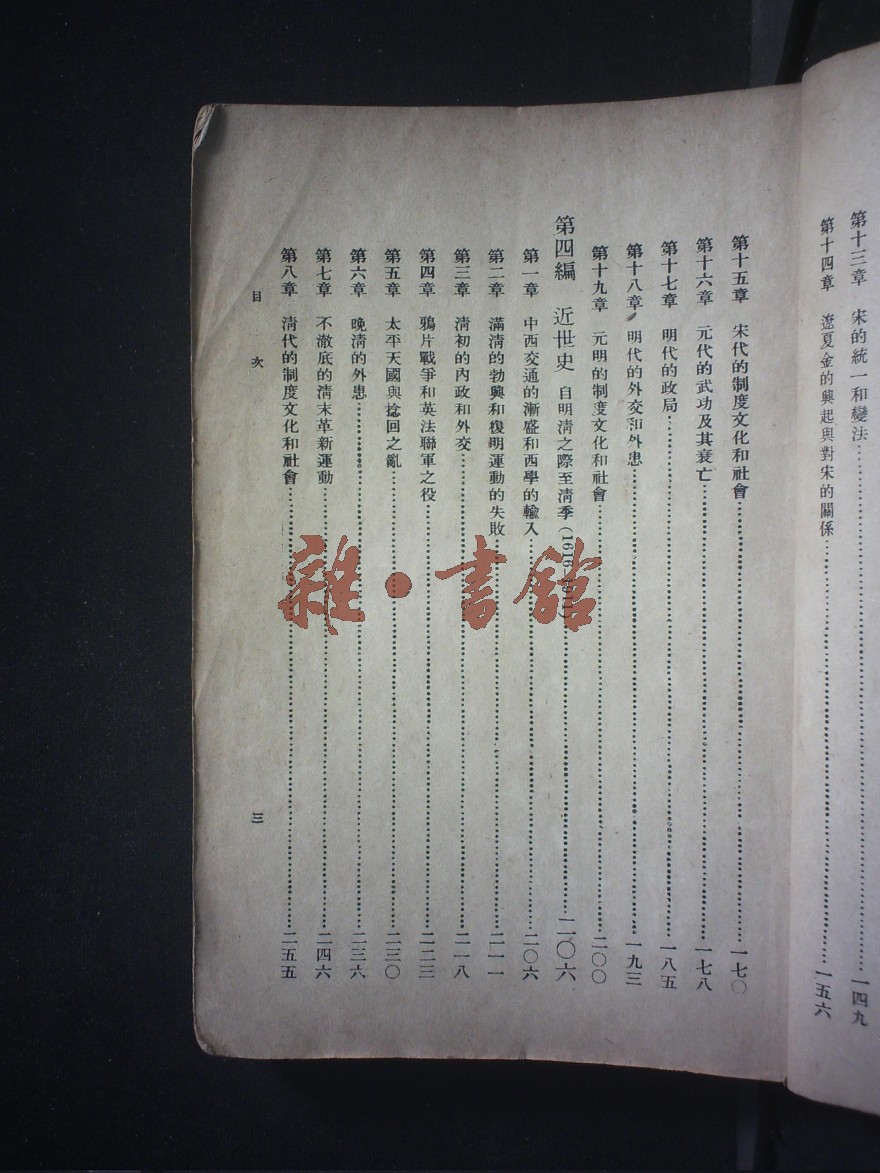 第十三章　宋的統一和變法……一四九
第十四章　遼夏金的興起與對宋的關係……一五六
第十五章　宋代的制度文化和社會……一七〇
第十六章　元代的武功及其衰亡……一七八
第十七章　明代的政局……一八五
第十八章　明代的外交和外患……一九三
第十九章　元明的制度文化和社會……二〇〇
第四編　近世史　自明清之際至清季（1616-1911）……二〇六
第一章　中西交通的漸盛和西學的輸入……二〇六
第二章　滿清的勃興和復明運動的失敗……二一一
第三章　清初的內政和外交……二一八
第四章　鴉片戰爭和英法聯軍之役……二二三
第五章　太平天國與捻回之亂……二三〇
第六章　晚清的外患……二三六
第七章　不澈底的清末革新運動……二四六
第八章　清代的制度文化和社會……二五五
目次
三
雜·書館